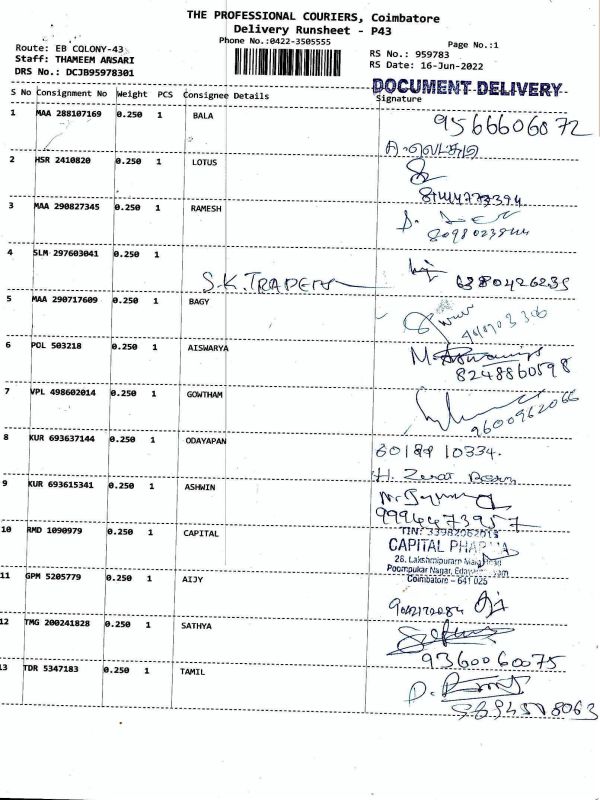 THE PROFESSIONAL COURIERS, Coimbatore
Delivery Runsheet - P43
Phone No.:0422-3505555
Page No.:1
Route: EB COLONY-43
Staff: THAMEEM ANSARI
DRS No.: DCJB95978301
RS No.: 959783
RS Date: 16-Jun-2022
DOCUMENT DELIVERY
S No Consignment No Weight PCS Consignee Details Signature
1 MAA 288107169 0.250 1 BALA 9566606072
2 HSR 2410820 0.250 1 LOTUS
3 MAA 290827345 0.250 1 RAMESH
4 SLM 297603041 0.250 1 S.K. TRADERS 6380426235
5 MAA 290717609 0.250 1 BAGY
6 POL 503218 0.250 1 AISWARYA
8248860598
7 VPL 498602014 0.250 1 GOWTHAM
9600962066
8 KUR 693637144 0.250 1 ODAYAPAN
9 KUR 693615341 0.250 1 ASHWIN
9994473957
10 RMD 1090979 0.250 1 CAPITAL
CAPITAL PHARMA
26, Lakshmipuram Main Road
Poompukar Nagar,
Coimbatore - 641 025
11 GPM 5205779 0.250 1 AIJY
12 TMG 200241828 0.250 1 SATHYA
9360060075
13 TDR 5347183 0.250 1 TAMIL